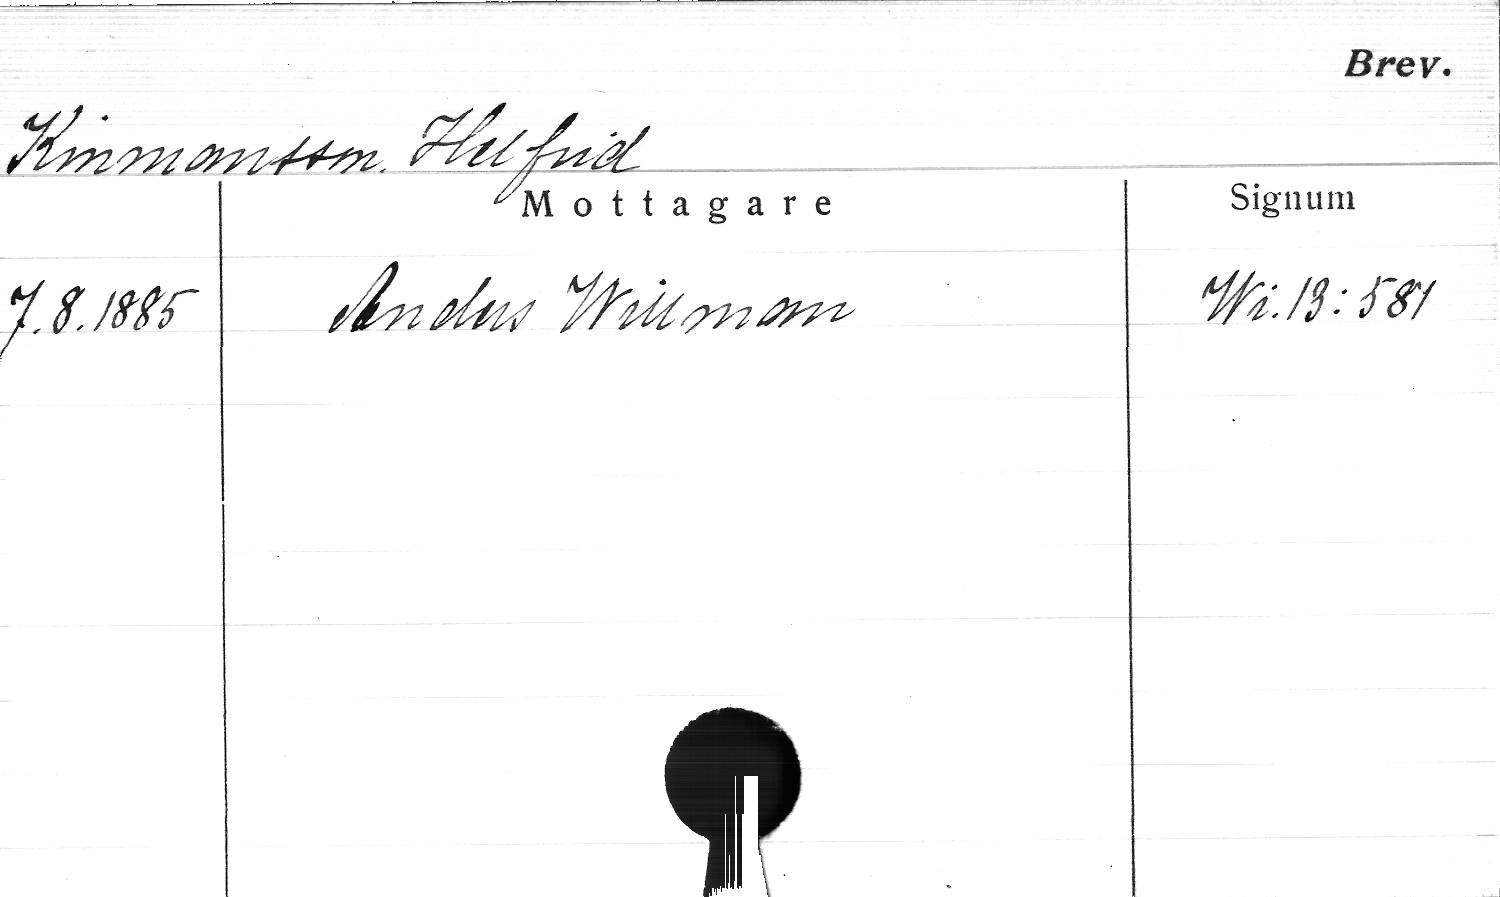 Brev.
Kinmansson, Helfrid
Mottagare Signum
7.8.1885 Anders Willman Wi.13:581